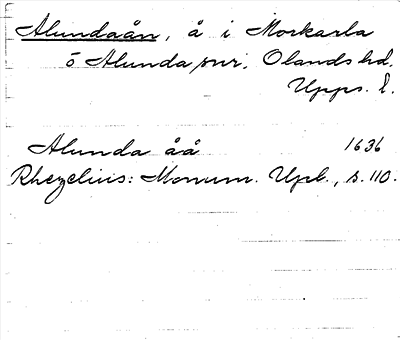 Alundaån, å i Morkarla
o Alunda snr, Olands hd.
Upps. l.
Alunda åå 1636
Rhezelius: Monum. Upl., s. 110.